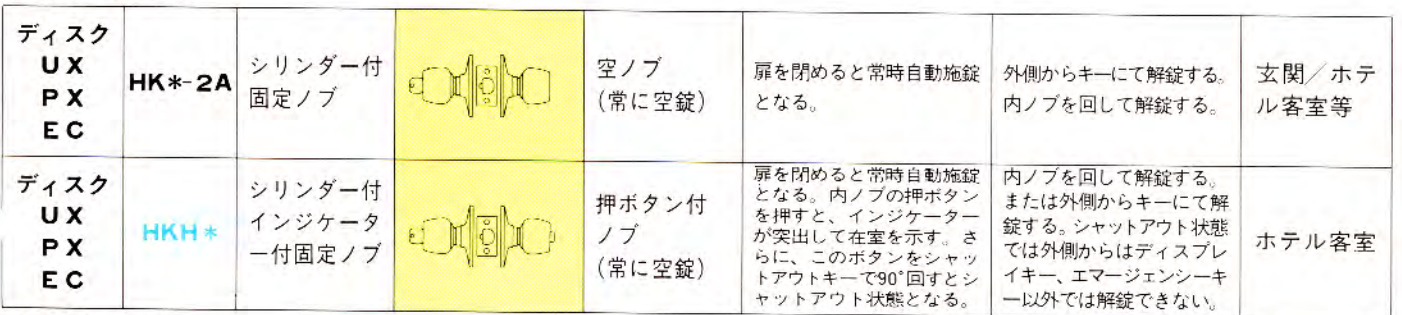 ディスク
UX
PX
EC
HK*-2A
シリンダー付
固定ノブ
空ノブ
(常に空錠)
扉を閉めると常時自動施錠
となる。
外側からキーにて解錠する。
内ノブを回して解錠する。
玄関／ホテ
ル客室等
ディスク
UX
PX
EC
HKH*
シリンダー付
インジケータ
ー付固定ノブ
押ボタン付
ノブ
(常に空錠)
扉を閉めると常時自動施錠
となる。内ノブの押ボタン
を押すと、インジケーター
が突出して在室を示す。さ
らに、このボタンをシャッ
トアウトキーで90°回すとシ
ャットアウト状態となる。
内ノブを回して解錠する。
または外側からキーにて解
錠する。シャットアウト状態
では外側からはディスプレ
イキー、エマージェンシーキ
ー以外では解錠できない。
ホテル客室